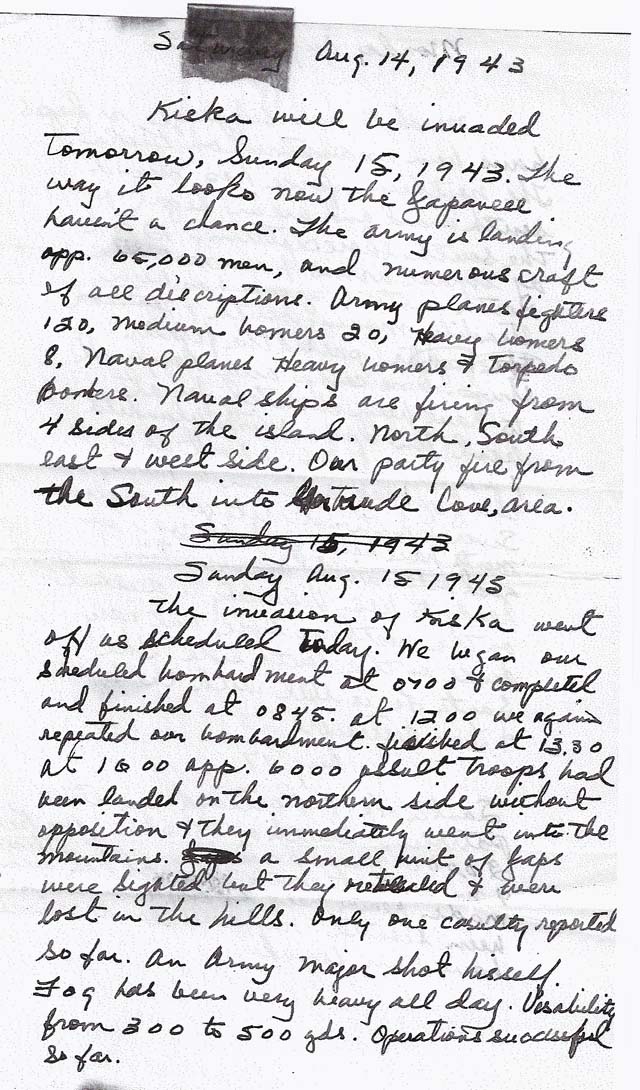 Saturday Aug. 14, 1943
Kiska will be invaded
Tomorrow, Sunday 15, 1943. The
way it looks now the Japanese
haven't a chance. The army is landing
app. 65,000 men, and numerous craft
of all discriptions. Army planes fighters
120, medium bomers 20, Heavy bomers
8, Naval planes Heavy bomers & Torpedo
bombers. Naval ships are firing from
4 sides of the island. North, South
east & west side. Our party fire from
the South into Gertrude Cove, area.
Sunday 15, 1943
Sunday Aug. 15 1943
The invasion of Kiska went
off as scheduled today. We began our
scheduled bombardment at 0700 & completed
and finished at 0845. at 1200 we again
repeated our bombardment. finished at 13.30
at 1600 app. 6000 assult troops had
been landed on the northern side without
opposition & they immediately went into the
mountains. a small unit of Japs
were sighted but they retreated & were
lost in the hills. Only one casulty reported
so far. An Army major shot hisself.
Fog has been very heavy all day. Visability
from 300 to 500 yds. Operations successful
so far.